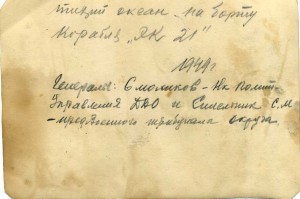 тихий океан „на борту
Корабля „ЯК 21"
1949г
Генералы: Смоликов - Нк Полит-
Управления ДВО и Синельник С.М
- пред военного трибунала округа